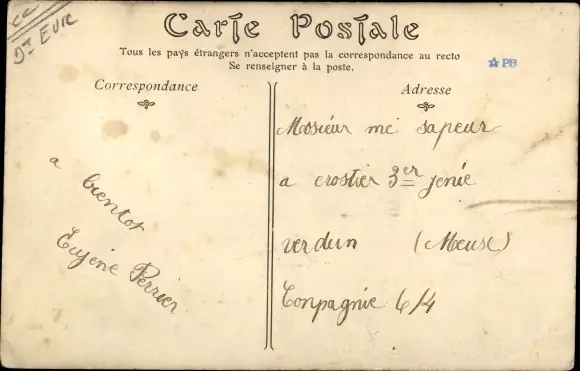 cc
Dt EUR
Carte Postale
Tous les pays étrangers n'acceptent pas la correspondance au recto
Se renseigner à la poste.
☆PB
Correspondance
Adresse
a
bientot
Eujène Perrier
Mosiéur mi sapeur
a crostier 3er jenie
verdun (Meuse)
Conpagnie 6/4